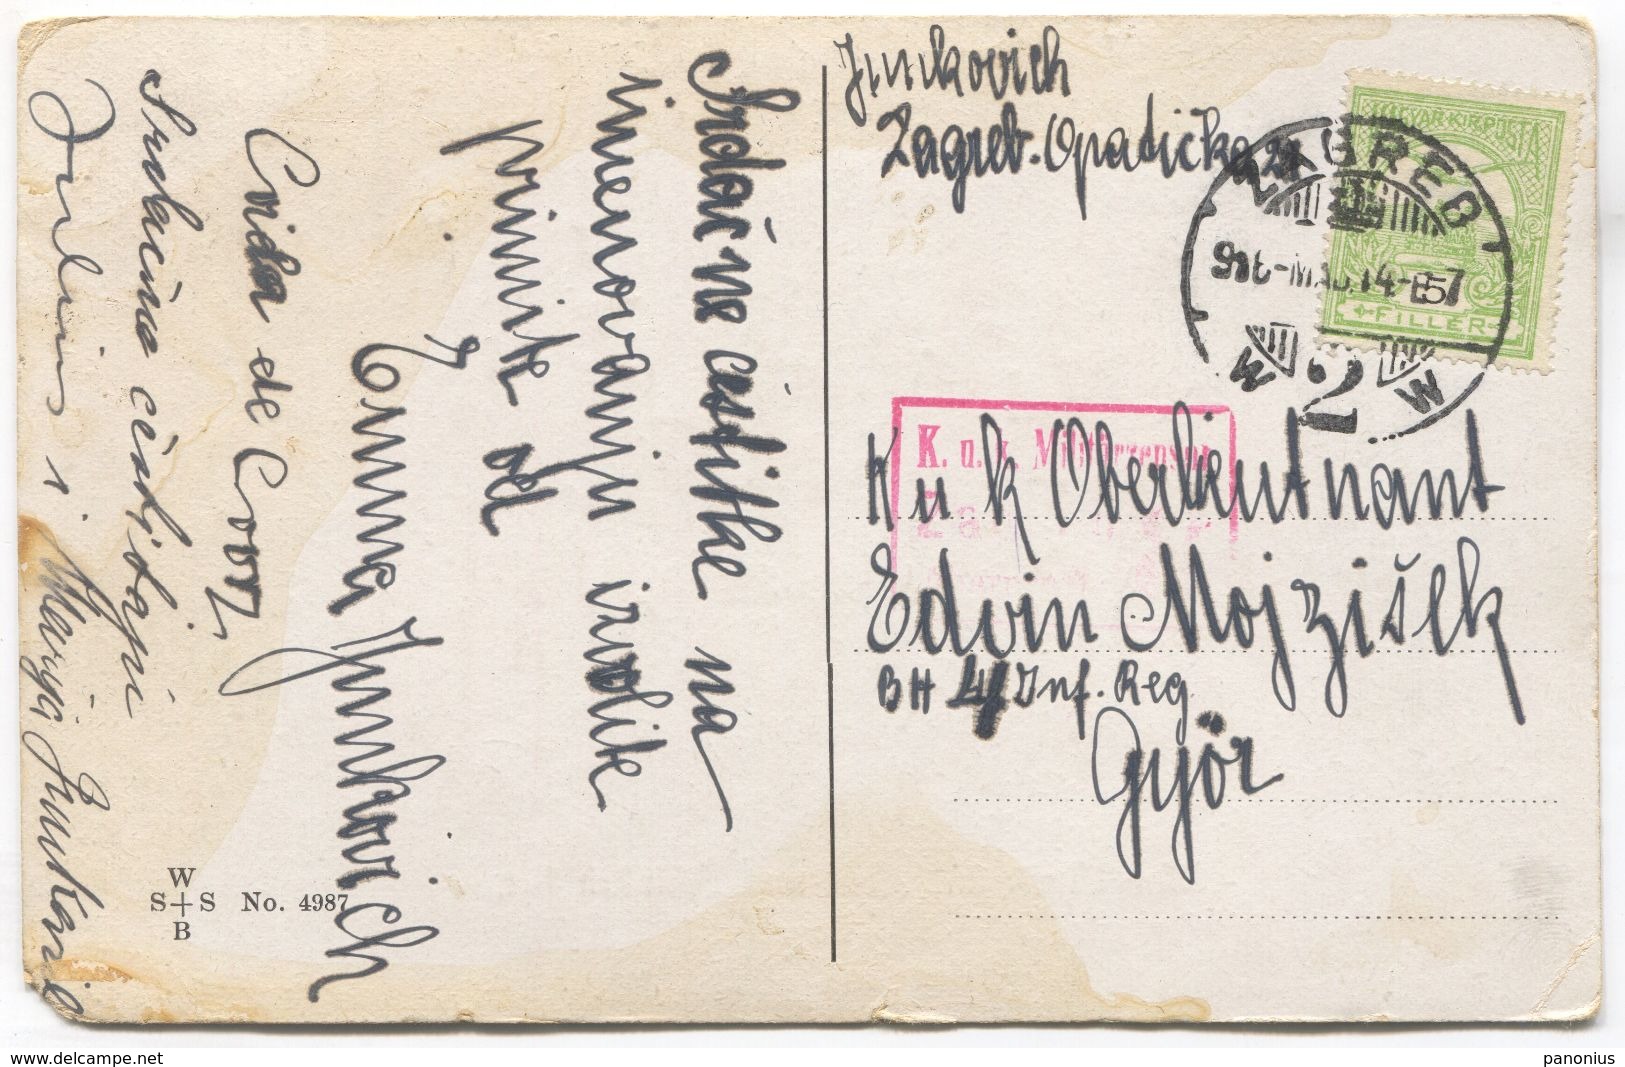 Srdačne čestitke na
imenovanju izvolite
primite od
Emma Junkovich
Srdačno čestitaju
i Marija Junković
W
S S No. 4987
B
Junkovich
Zagreb. Opatička 21
MAGYAR KIR. POSTA
FILLER
ZAGREB
916
K. u. k. Militärzensur
K u k Oberleutnant
Edvin Mojzišek
BH 4 Inf. Reg
Györ
www.delcampe.net
panonius